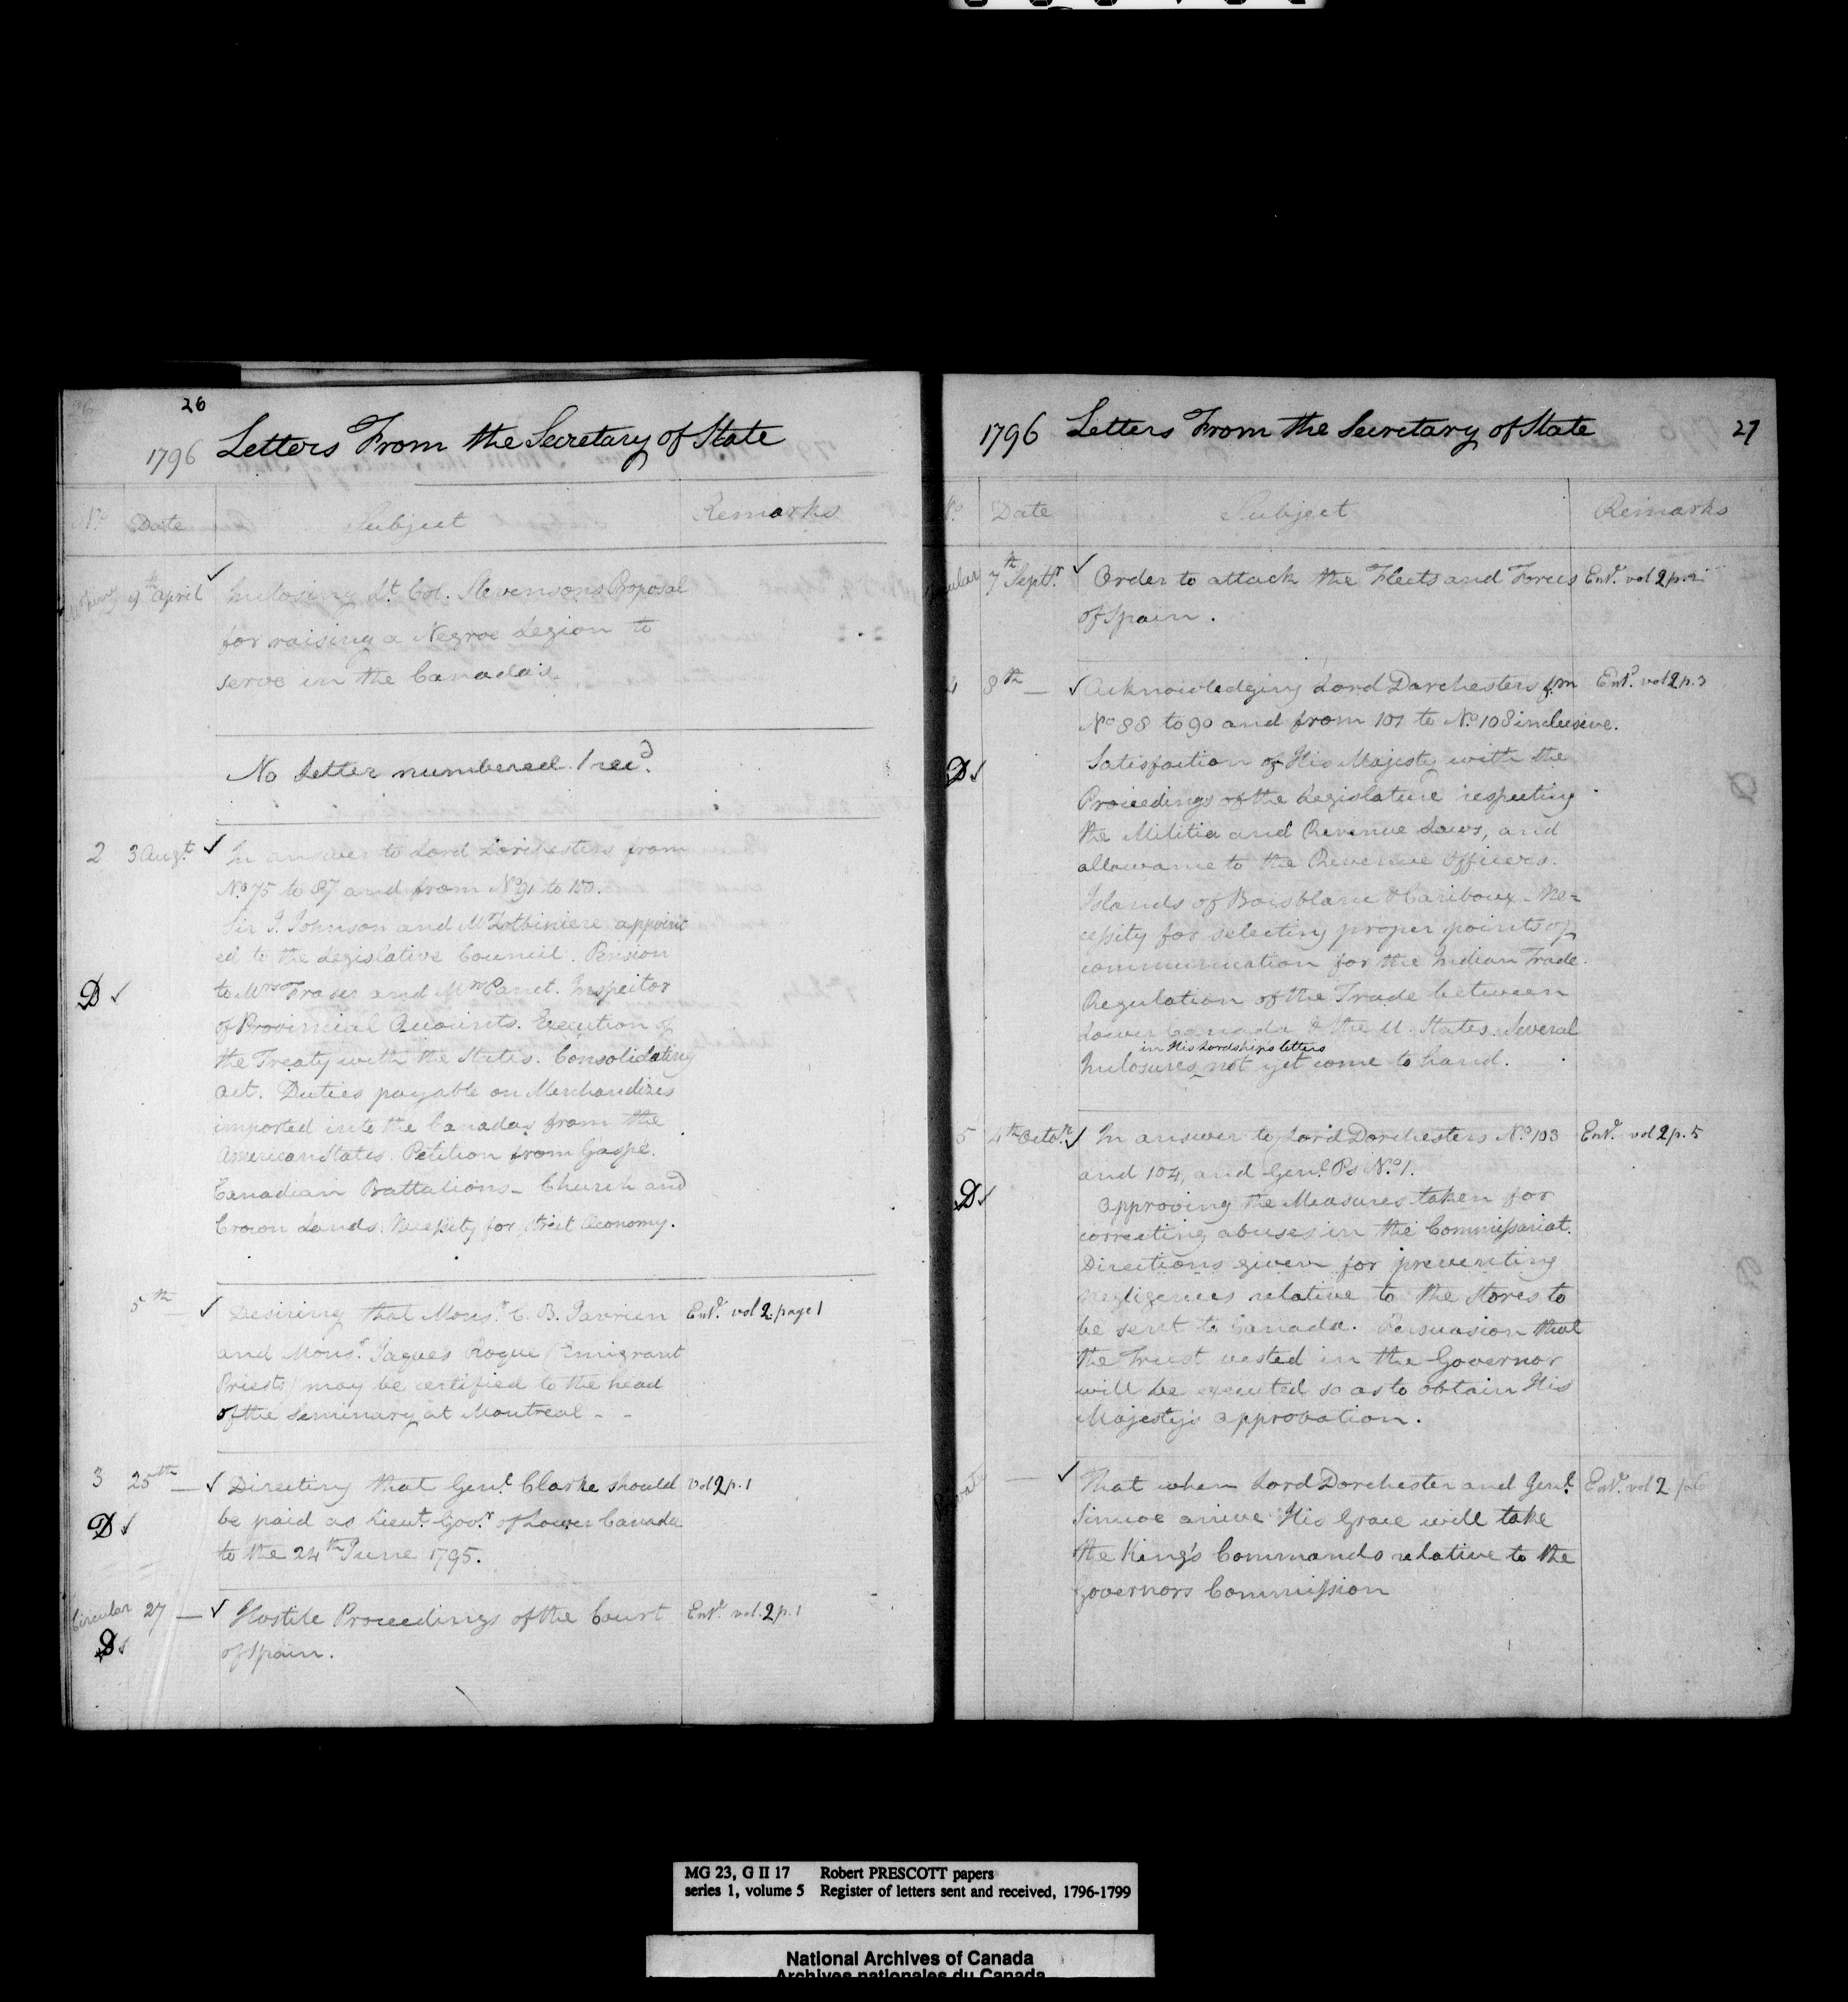 26
1796 Letters From the Secretary of State
No. Date Subject Remarks
9th April ✓ Inclosing Lt. Col. Stevensons Proposal
for raising a Negroe Legion to
serve in the Canada's.
No Letter numbered 1 recd.
2 3 Augt. ✓ In answer to Lord Dorchesters from
No. 75 to 87 and from No. 91 to 100.
Sir J. Johnson and Mr Lotbiniere appoint
ed to the Legislative Council. Pension
D ✓ to Mrs Fraser and Mrs Panet. Inspector
of Provincial Accounts. Execution of
the Treaty with the States. Consolidating
Act. Duties payable on Merchandizes
imported into the Canadas from the
American States. Petition from Gaspé.
Canadian Battalions - Church and
Crown Lands. Necessity for strict Œconomy.
5th — ✓ Desiring that Monsr. C. B. Entd. vol 2. page 1
and Monsr. Jaques Roque (Emigrant
Priests) may be certified to the head
of the Seminary at Montreal - -
3 25th — ✓ Directing that Genl. Clarke should vol 2 p. 1
D ✓ be paid as Lieut. Govr. of Lower Canada
to the 24th June 1795.
Circular 27 — ✓ Hostile Proceedings of the Court Entd. vol. 2 p. 1
D ✓ of Spain.
1796 Letters From the Secretary of State 27
No. Date Subject Remarks
7th Septr. ✓ Order to attack the Fleets and Forces Entd. vol 2 p. 2
of Spain.
4 8th — ✓ Acknowledging Lord Dorchesters fm Entd. vol 2 p. 3
No. 88 to 90 and from 101 to No. 108 inclusive.
D ✓ Satisfaction of His Majesty with the
Proceedings of the Legislature respecting
the Militia and Revenue Laws, and
allowance to the Revenue Officers.
Islands of Boisblanc & Cariboux - Ne=
cessity for selecting proper points of
communication for the Indian Trade.
Regulation of the Trade between
Lower Canada & the U. States. Several
in His Lordships letters
Inclosures ‸ not yet come to hand.
5 4th Octor. ✓ In answer to Lord Dorchesters No. 103 Entd. vol 2 p. 5
and 104, and Genl. Ps No. 1.
D ✓ Approving the Measures taken for
correcting abuses in the Commissariat.
Directions given for preventing
negligences relative to the Stores to
be sent to Canada. Persuasion that
the Trust vested in the Governor
will be executed so as to obtain His
Majesty's approbation.
— ✓ That when Lord Dorchester and Genl. Entd. vol 2 p. 6
Simcoe arrive His Grace will take
the King's Commands relative to the
Governors Commission
MG 23, G II 17 Robert PRESCOTT papers
series 1, volume 5 Register of letters sent and received, 1796-1799
National Archives of Canada
Archives nationales du Canada